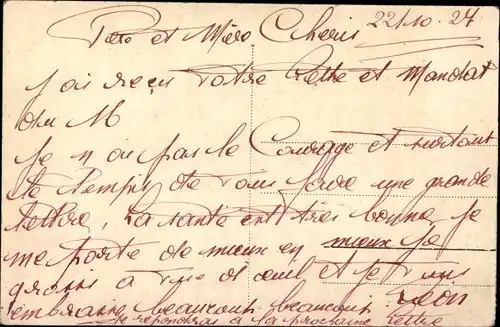 Père et Mère Cheris 22/10.24
J ai reçu Votre Lettre et Mandat
du M
Je n ai pas le Courage et surtout
le Temps de vous faire une grande
lettre, La santé est très bonne je
me porte de mieux en mieux Je
grossi à vue d œuil et je vous
embrasse beaucoup beaucoup Léon
Je repondrai à la prochaine lettre